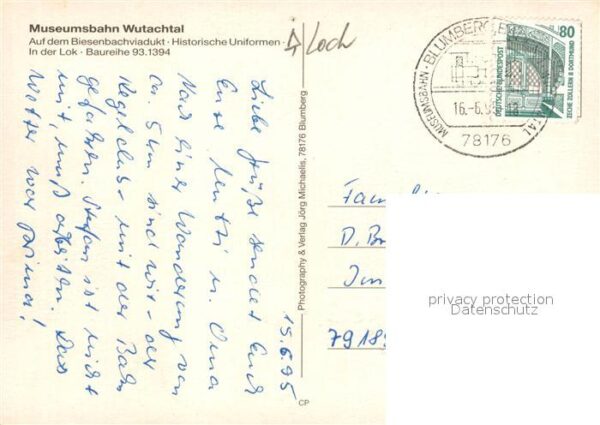 Museumsbahn Wutachtal
Auf dem Biesenbachviadukt · Historische Uniformen
In der Lok · Baureihe 93.1394
Loch
15.6.95
Liebe Grüße sendet Euch
Eure Mutti u. Oma
Nach einer Wanderung von
ca. 5 km sind wir - der
Kegelclub - mit der Bahn
gefahren. Stefan ist nicht
mit, muß arbeiten. Das
Wetter war prima!
Photography & Verlag Jörg Michaelis, 78176 Blumberg
CP
MUSEUMSBAHN · BLUMBERG
16.-6.95
78176
80
DEUTSCHE BUNDESPOST
ZECHE ZOLLERN II DORTMUND
Fam
D. Br
7918
privacy protection
Datenschutz